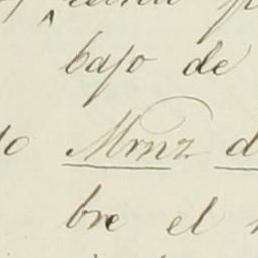 bajo de
Mrnz d
bre el